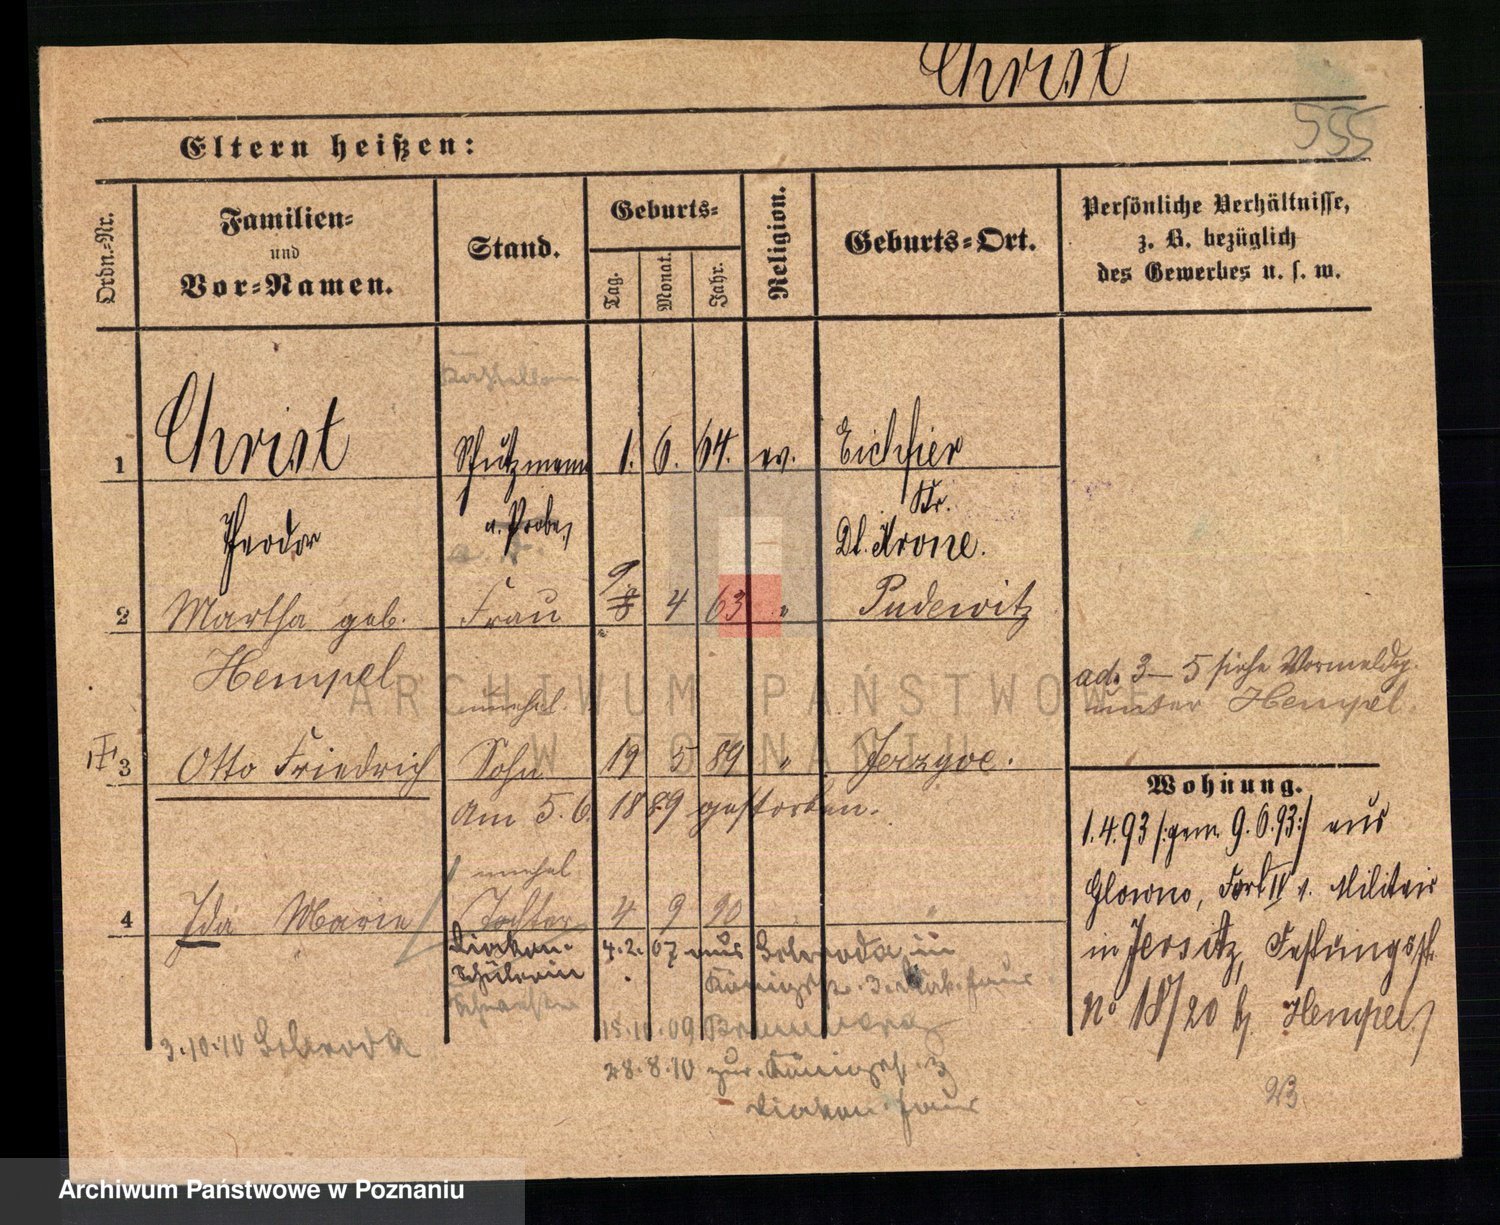 Christ
555
Eltern heißen:
Ordn.-Nr.
Familien-
und
Vor-Namen.
Stand.
Geburts-
Tag.
Monat.
Jahr.
Religion.
Geburts-Ort.
Persönliche Verhältnisse,
z. B. bezüglich
des Gewerbes u. s. w.
1 Christ Schutzmann 1. 6. 64. ev. Eichfier
Kr.
Theodor a. Probe Dt. Krone.
2 Martha geb. Frau 9 4 63 " Pudewitz
Hempel
unehel.
ad. 3–5 siehe Vormeldg.
unter Hempel.
3 Otto Friedrich Sohn 19 5 89 " Jerzyce.
Am 5. 6. 1889 gestorben.
unehel.
4 Ida Marie Tochter 4 9 90 "
Diakon. 4.2.07 aus Schroda in
Schülerin Königstr. 3. Diak. Haus
Schwester
15.10.09
3.10.10 Schroda
28.8.10 zur. Königstr. 3
Diakon. Haus
Wohnung.
1.4.93 /:gem. 9.6.93:/ aus
Glowno, Fort IV v. Militair
in Jersitz, Festungsstr.
No 18/20 b/ Hempel
ARCHIWUM PAŃSTWOWE
W POZNANIU
Archiwum Państwowe w Poznaniu